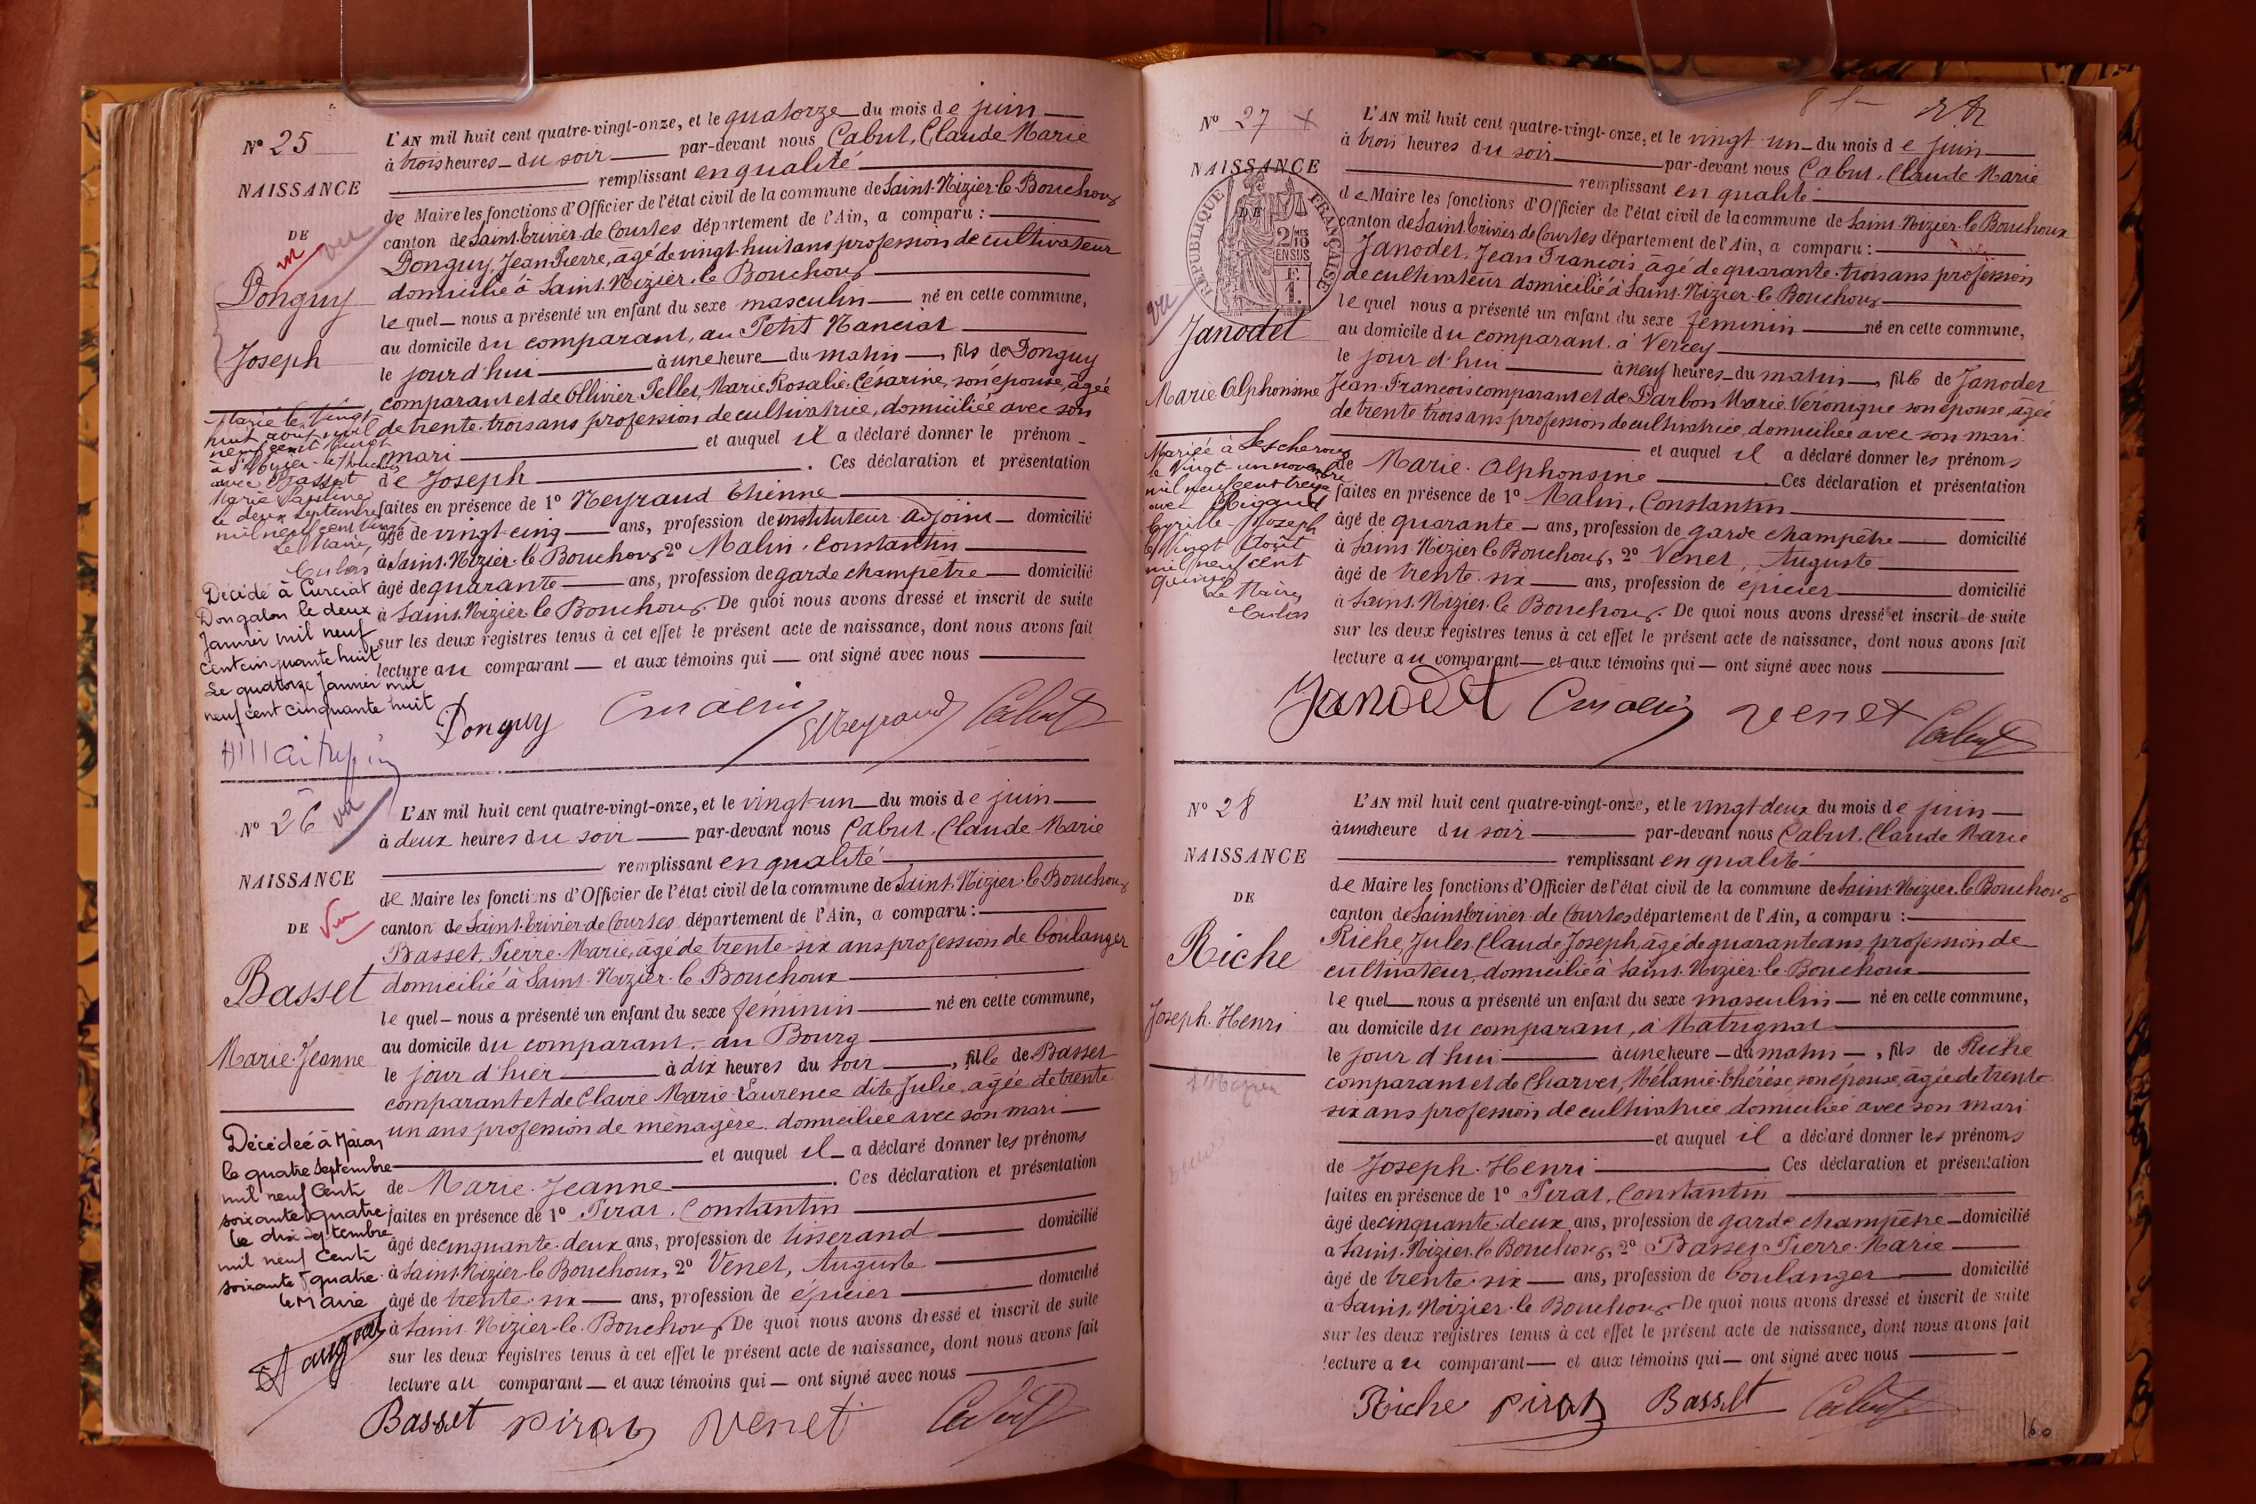 N° 25
NAISSANCE
DE
Donguy
Joseph
L'AN mil huit cent quatre-vingt-onze, et le quatorze du mois de juin
à trois heures du soir par-devant nous Cabut, Claude Marie
remplissant en qualité
de Maire les fonctions d'Officier de l'état civil de la commune de Saint-Nizier-le-Bouchoux
canton de Saint-Trivier-de-Courtes département de l'Ain, a comparu :
Donguy, Jean Pierre, âgé de vingt-huit ans profession de cultivateur
domicilié à Saint-Nizier-le-Bouchoux
lequel nous a présenté un enfant du sexe masculin né en cette commune,
au domicile du comparant, au Petit Nanciat
le jourd'hui à une heure du matin, fils de Donguy
comparant et de Ollivier Pellet, Marie Rosalie Césarine, son épouse, âgée
de trente-trois ans profession de cultivatrice, domiciliée avec son
mari et auquel il a déclaré donner le prénom
de Joseph. Ces déclaration et présentation
faites en présence de 1° Neyraud Etienne
âgé de vingt-cinq ans, profession de instituteur adjoint domicilié
à Saint-Nizier-le-Bouchoux, 2° Malin, Constantin
âgé de quarante ans, profession de garde champêtre domicilié
à Saint-Nizier-le-Bouchoux. De quoi nous avons dressé et inscrit de suite
sur les deux registres tenus à cet effet le présent acte de naissance, dont nous avons fait
lecture au comparant et aux témoins qui ont signé avec nous
Marié le vingt
huit août mil
neuf cent vingt
à St Nizier-le-Bouchoux
avec Basset
Marie
le deux septembre
mil neuf cent vingt
Le Maire,
Décédé à Curciat
Dongalon le deux
Janvier mil neuf
cent cinquante huit
Le quatorze Janvier mil
neuf cent cinquante huit
Donguy CMalin ENeyraud Cabut
N° 26
vu
NAISSANCE
DE
Vu
Basset
Marie-Jeanne
L'AN mil huit cent quatre-vingt-onze, et le vingt-un du mois de juin
à deux heures du soir par-devant nous Cabut, Claude Marie
remplissant en qualité
de Maire les fonctions d'Officier de l'état civil de la commune de Saint-Nizier-le-Bouchoux
canton de Saint-Trivier-de-Courtes département de l'Ain, a comparu :
Basset, Pierre-Marie, âgé de trente-six ans profession de boulanger
domicilié à Saint-Nizier-le-Bouchoux
lequel nous a présenté un enfant du sexe féminin né en cette commune,
au domicile du comparant, au Bourg
le jour d'hier à dix heures du soir, fille de Basset
comparant et de Claire Marie-Laurence dite Julie, âgée de trente
un ans profession de ménagère domiciliée avec son mari
et auquel il a déclaré donner les prénoms
de Marie-Jeanne. Ces déclaration et présentation
faites en présence de 1° Pirat, Constantin
âgé de cinquante-deux ans, profession de tisserand domicilié
à Saint-Nizier-le-Bouchoux, 2° Venet, Auguste
âgé de trente-six ans, profession de épicier domicilié
à Saint-Nizier-le-Bouchoux. De quoi nous avons dressé et inscrit de suite
sur les deux registres tenus à cet effet le présent acte de naissance, dont nous avons fait
lecture au comparant et aux témoins qui ont signé avec nous
Décédée à Mâcon
le quatre Septembre
mil neuf Cent
soixante quatre
le dix septembre
mil neuf Cent
soixante quatre.
le Maire
Basset Pirat Venet Cabut
N° 27
NAISSANCE
DE
RÉPUBLIQUE FRANÇAISE
vu
Janodet
Marie Alphonsine
L'AN mil huit cent quatre-vingt-onze, et le vingt un du mois de juin
à trois heures du soir par-devant nous Cabut, Claude Marie
remplissant en qualité
de Maire les fonctions d'Officier de l'état civil de la commune de Saint-Nizier-le-Bouchoux
canton de Saint-Trivier-de-Courtes département de l'Ain, a comparu :
Janodet, Jean François, âgé de quarante-trois ans profession
de cultivateur domicilié à Saint-Nizier-le-Bouchoux
lequel nous a présenté un enfant du sexe féminin né en cette commune,
au domicile du comparant, à Vercey
le jour d'hui à neuf heures du matin, fille de Janodet
Jean-François comparant et de Darbon Marie Véronique son épouse, âgée
de trente-trois ans profession de cultivatrice, domiciliée avec son mari
et auquel il a déclaré donner les prénoms
de Marie-Alphonsine. Ces déclaration et présentation
faites en présence de 1° Malin, Constantin
âgé de quarante ans, profession de garde champêtre domicilié
à Saint-Nizier-le-Bouchoux, 2° Venet, Auguste
âgé de trente-six ans, profession de épicier domicilié
à Saint-Nizier-le-Bouchoux. De quoi nous avons dressé et inscrit de suite
sur les deux registres tenus à cet effet le présent acte de naissance, dont nous avons fait
lecture au comparant et aux témoins qui ont signé avec nous
Mariée à Lescheroux
le Vingt-un novembre
mil neuf cent treize
avec Rigaud
Cyrille-Joseph
le Vingt Août
mil neuf cent
quinze
Le Maire,
Janodet CMalin Venet Cabut
N° 28
NAISSANCE
DE
Riche
Joseph-Henri
L'AN mil huit cent quatre-vingt-onze, et le vingt-deux du mois de juin
à une heure du soir par-devant nous Cabut, Claude Marie
remplissant en qualité
de Maire les fonctions d'Officier de l'état civil de la commune de Saint-Nizier-le-Bouchoux
canton de Saint-Trivier-de-Courtes département de l'Ain, a comparu :
Riche, Jules Claude Joseph, âgé de quarante ans, profession de
cultivateur, domicilié à Saint-Nizier-le-Bouchoux
lequel nous a présenté un enfant du sexe masculin né en cette commune,
au domicile du comparant, à Matrignat
le jour d'hui à une heure du matin, fils de Riche
comparant et de Charvet, Mélanie-Thérèse, son épouse, âgée de trente-
six ans profession de cultivatrice domiciliée avec son mari
et auquel il a déclaré donner les prénoms
de Joseph-Henri Ces déclaration et présentation
faites en présence de 1° Pirat, Constantin
âgé de cinquante-deux ans, profession de garde champêtre domicilié
à Saint-Nizier-le-Bouchoux, 2° Basset Pierre-Marie
âgé de trente-six ans, profession de boulanger domicilié
à Saint-Nizier-le-Bouchoux. De quoi nous avons dressé et inscrit de suite
sur les deux registres tenus à cet effet le présent acte de naissance, dont nous avons fait
lecture au comparant et aux témoins qui ont signé avec nous
Riche Pirat Basset Cabut
160